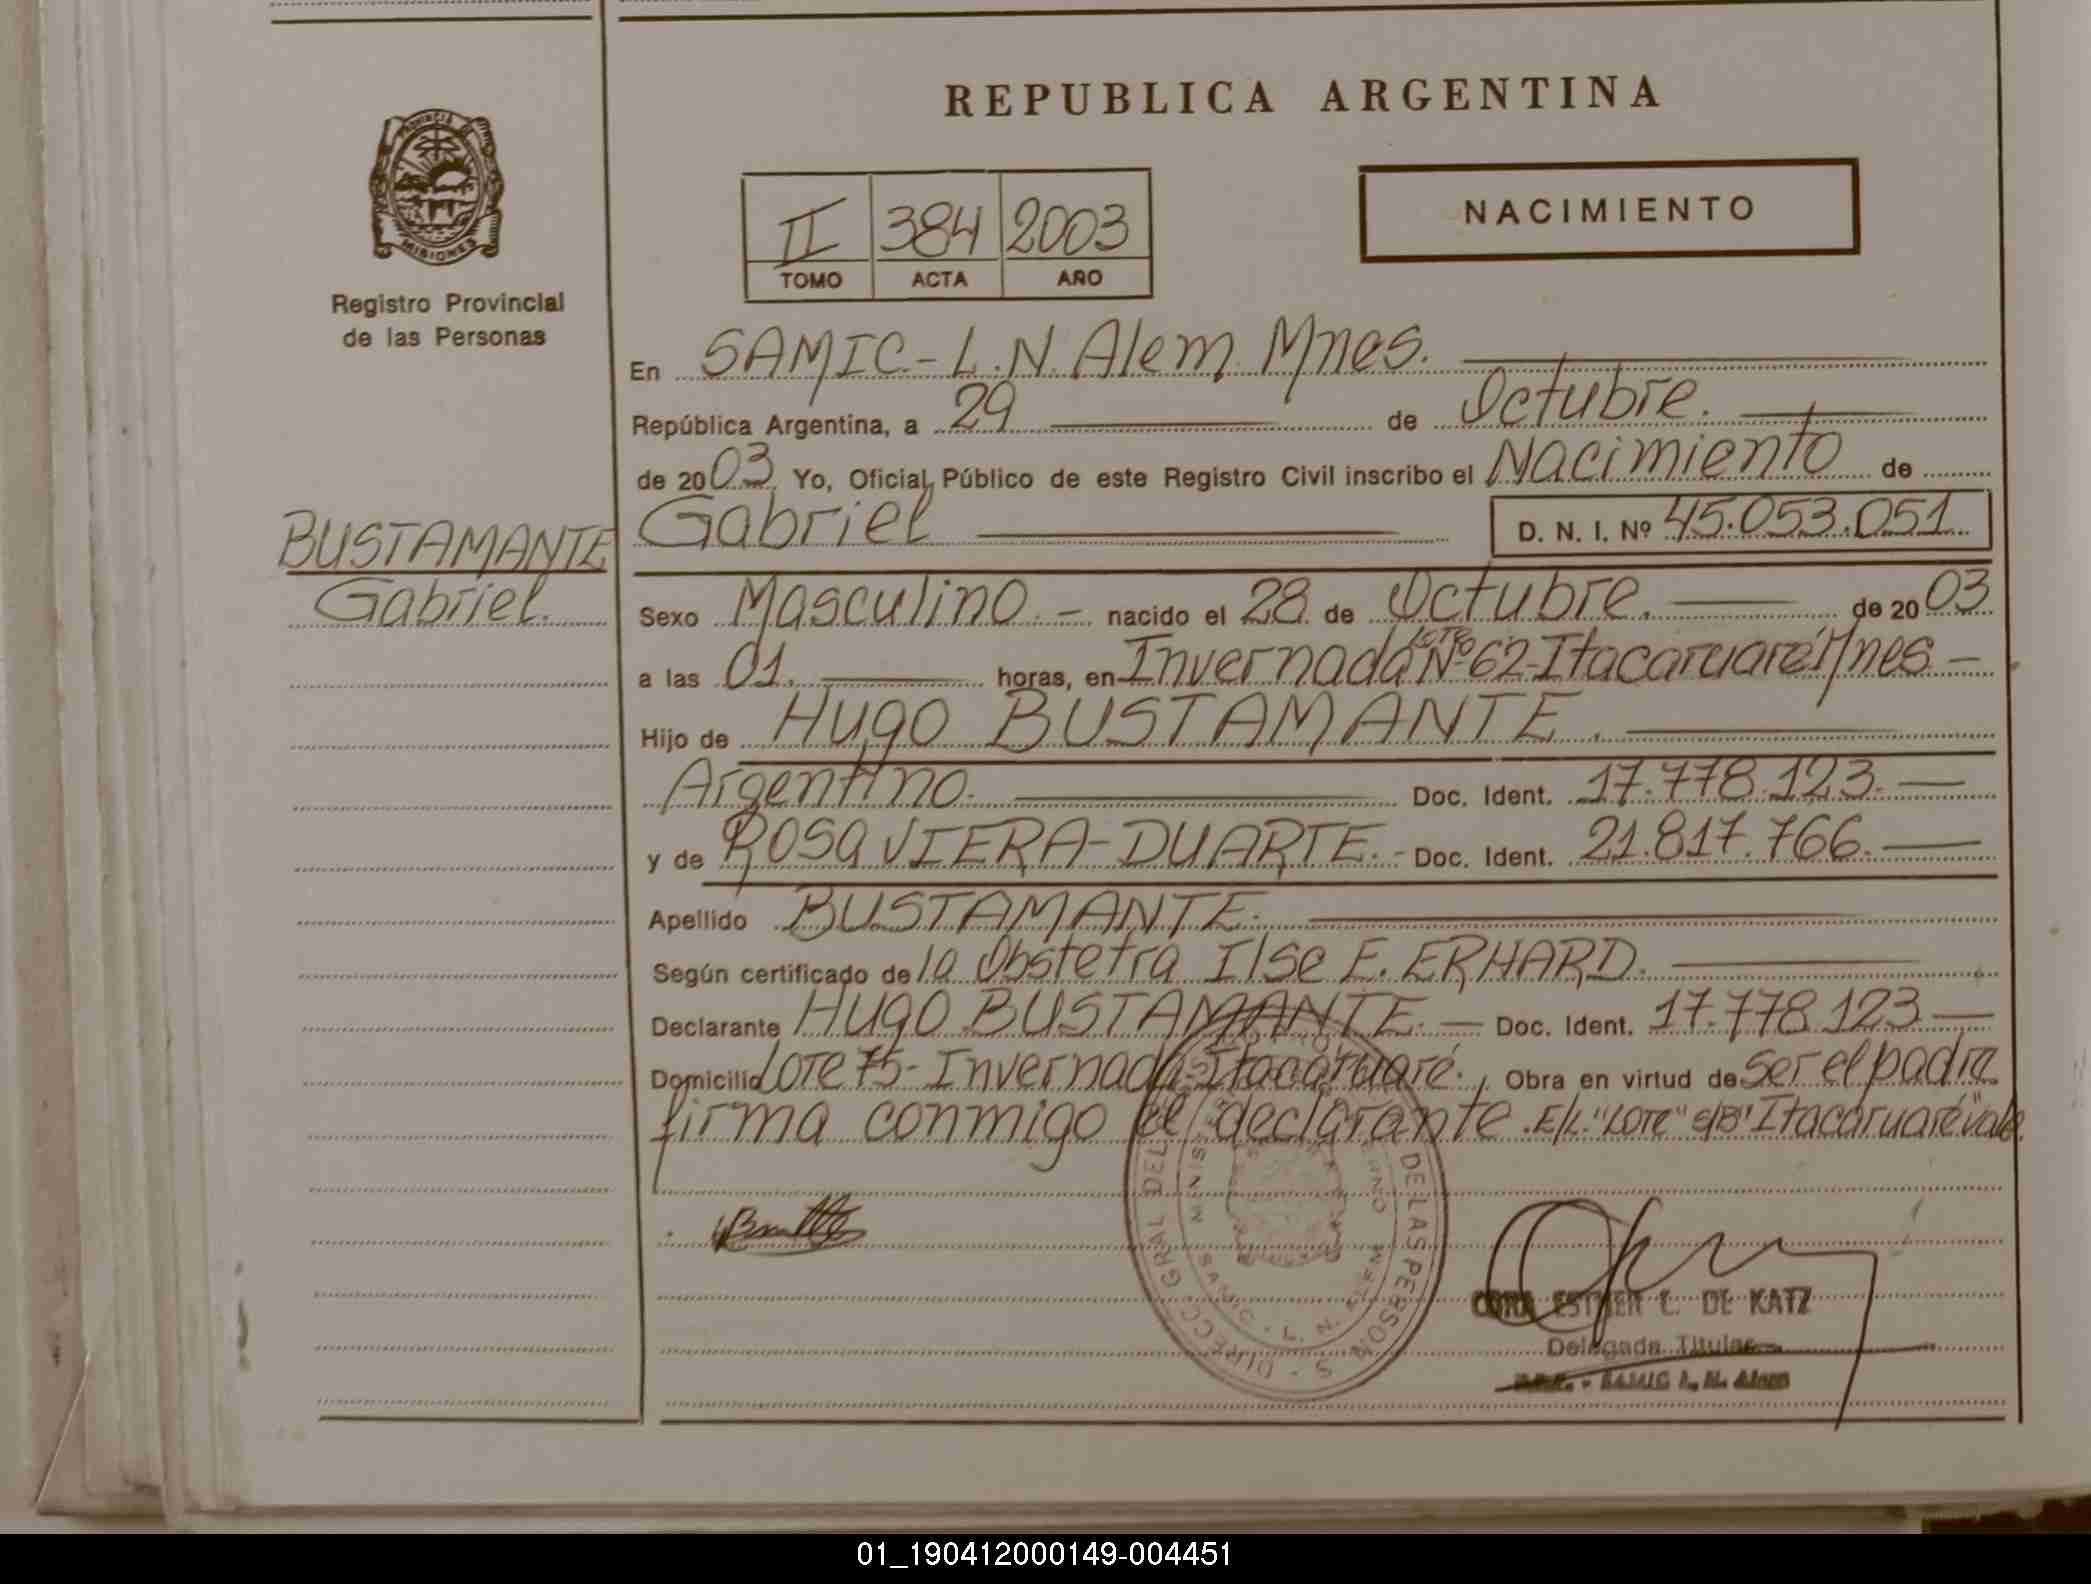 REPUBLICA ARGENTINA
PROVINCIA DE
MISIONES
Registro Provincial
de las Personas
II 384 2003
TOMO ACTA AÑO
NACIMIENTO
En SAMIC.- L.N. Alem. Mnes.
República Argentina, a 29 de Octubre.
de 2003 Yo, Oficial Público de este Registro Civil inscribo el Nacimiento de
BUSTAMANTE
Gabriel.
Gabriel D. N. I. Nº 45.053.051
Sexo Masculino. - nacido el 28 de Octubre. de 2003
a las 01. horas, en Invernada LOTE Nº 62-Itacaruaré Mnes -
Hijo de Hugo BUSTAMANTE.
Argentino. Doc. Ident. 17.778.123.
y de Rosa VIERA-DUARTE.- Doc. Ident. 21.817.766.
Apellido BUSTAMANTE.
Según certificado de la Obstetra Ilse E. ERHARD.
Declarante Hugo BUSTAMANTE. - Doc. Ident. 17.778.123
Domicilio LOTE 75- Invernada Itacaruaré., Obra en virtud de ser el padre
firma conmigo el declarante. E/L. "LOTE" S/B "Itacaruaré" vale.
DIRECC. GRAL DEL DE LAS PERSONAS
SAMIC - L. N. ALEM
CORA ESTHER C. DE KATZ
Delegada Titular
SAMIC L. N. Alem
01_190412000149-004451